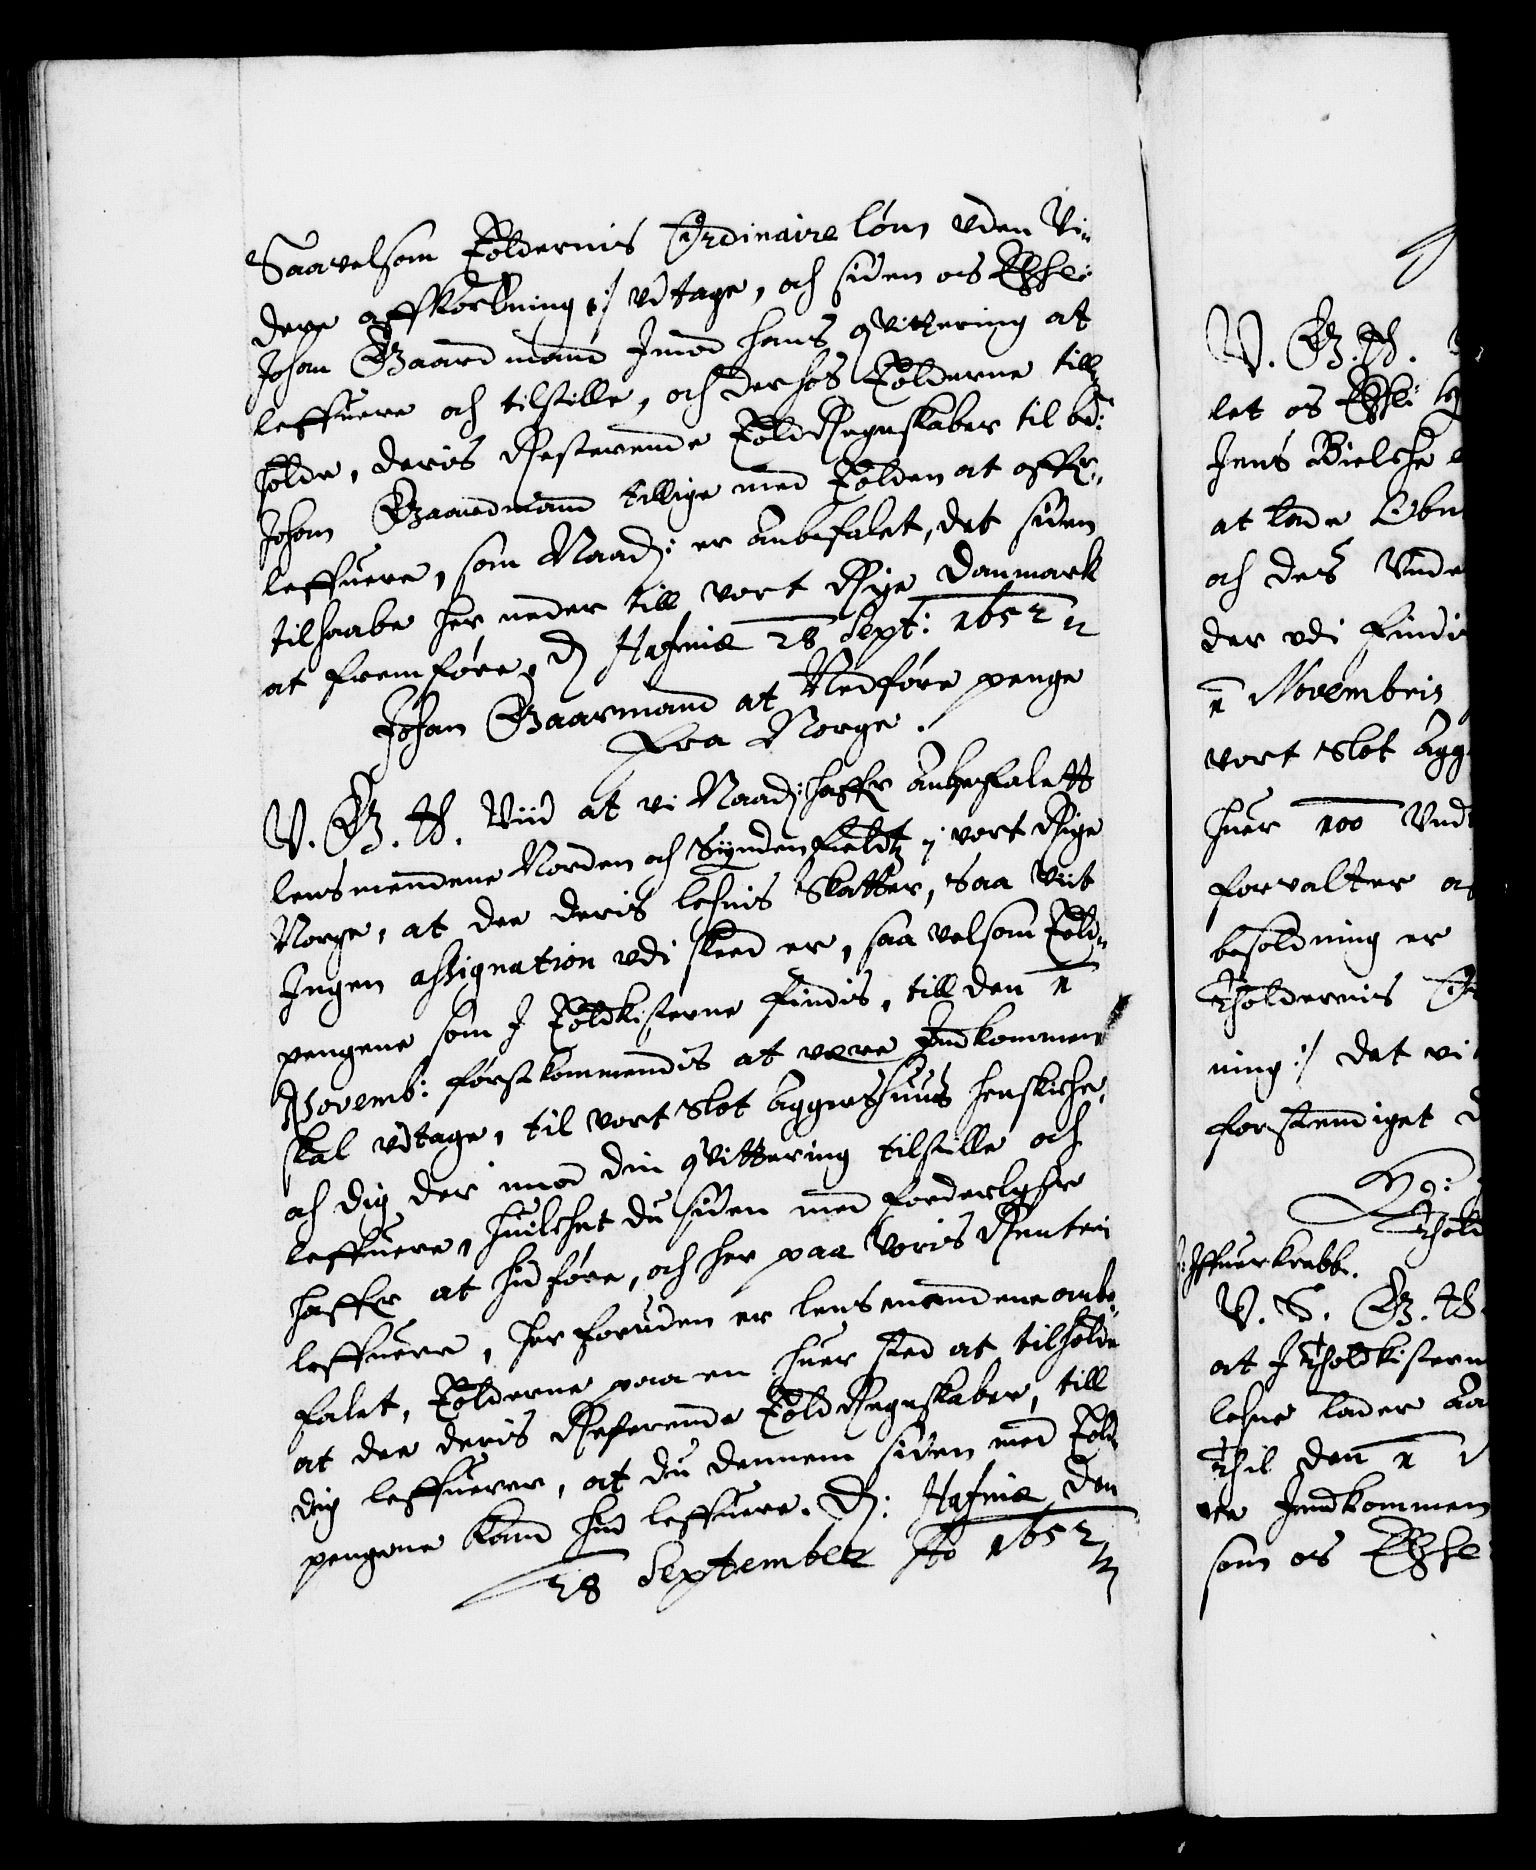 Saavelsom Toldernis Ordinaire løn uden Vi-
dere affkortning :/ vdtage, och siden os Elskel:
Johan Gaardmand Imod hans qvittering at
leffuere och tilstille, och derhos Tolderne till
holde, deris Resterende Told Regnskaber til bd:
Johan Gaardmand tillige med Tolden at offr-
leffuere, som Naadg: er anbefalet, det siden
tilhaabe her neder till vort Rige Danmark
at fremføre, D Hafniæ 28 Sept: 1652
Johan Gaarmand at Nedføre penge
fra Norge.
V. G. H. Viid at vi Naadg: haffr anbefalett
lensmendene Norden och Synden fieldtz i vort Rige
Norge, at dee deris lehnis Skatter, saa viit
Ingen assignation vdi skeed er, saa velsom Told-
pengene som I Toldkisterne findis, till den 11
Novemb: førstkommendis at være Indkommen
skal vdtage, til vort Slot Aggershuus henskiche,
och dig der imod din qvittering tilstille och
leffuere, huilchet du siden med forderligste
haffr at hid føre, och her paa Voris Renteri
leffuere, herforuden er lensmendene anbe-
falet, Tolderne paa en huer sted at tilholde
at dee deris Resterende Told Regnskaber, till
dig leffuerer, at du dennem siden med Told-
pengene kand hid leffuere. D: Hafniæ den
28 September Ao 1652
V. G. H.
let os Elskel:
Jens Bielche
at lade
och des Vnde
der vdi findi
11 Novembris
vort Slot Agg
huer 100 Vnd
forvalter
besoldning er
Tholdernis
ning :/ det vi
forstendiget
Thold
Iffuer Krabbe.
V. S. G. H.
at I Tholdkistern
lehne lader
Thil den 11
re Indkommen
som os Elskel